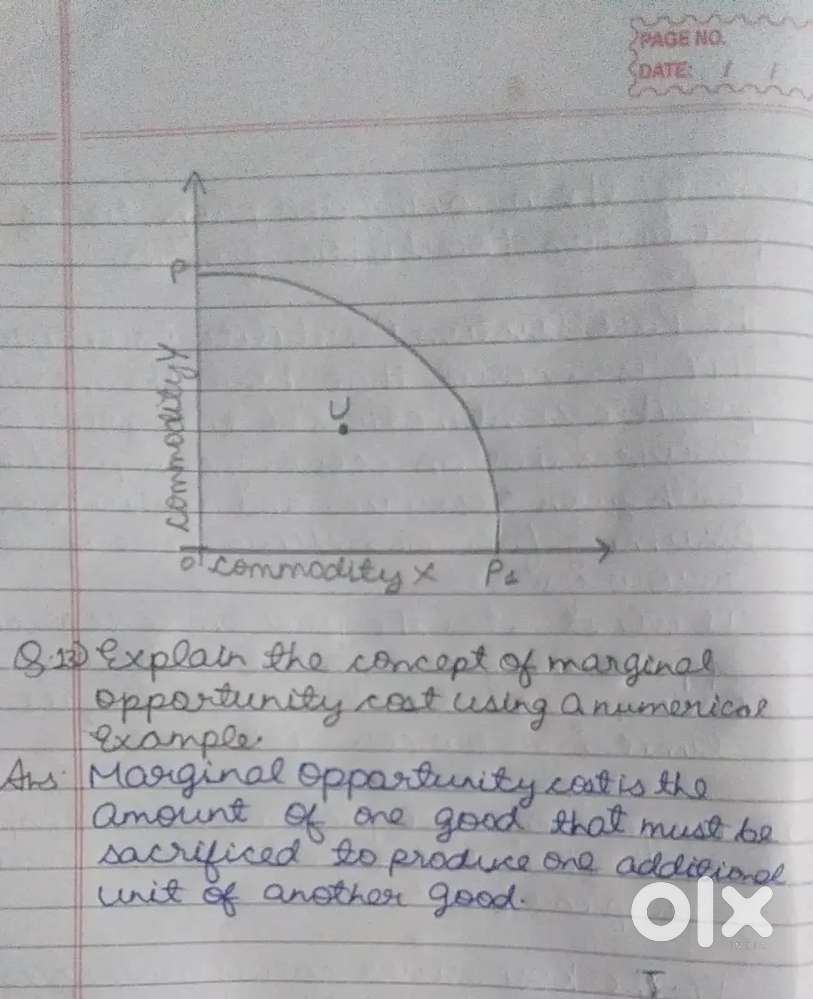 PAGE NO.
DATE: / /
P
commodity Y
U
O commodity X P1
Q.13) Explain the concept of marginal
opportunity cost using a numerical
example.
Ans. Marginal opportunity cost is the
amount of one good that must be
sacrificed to produce one additional
unit of another good.
olx
INDIA